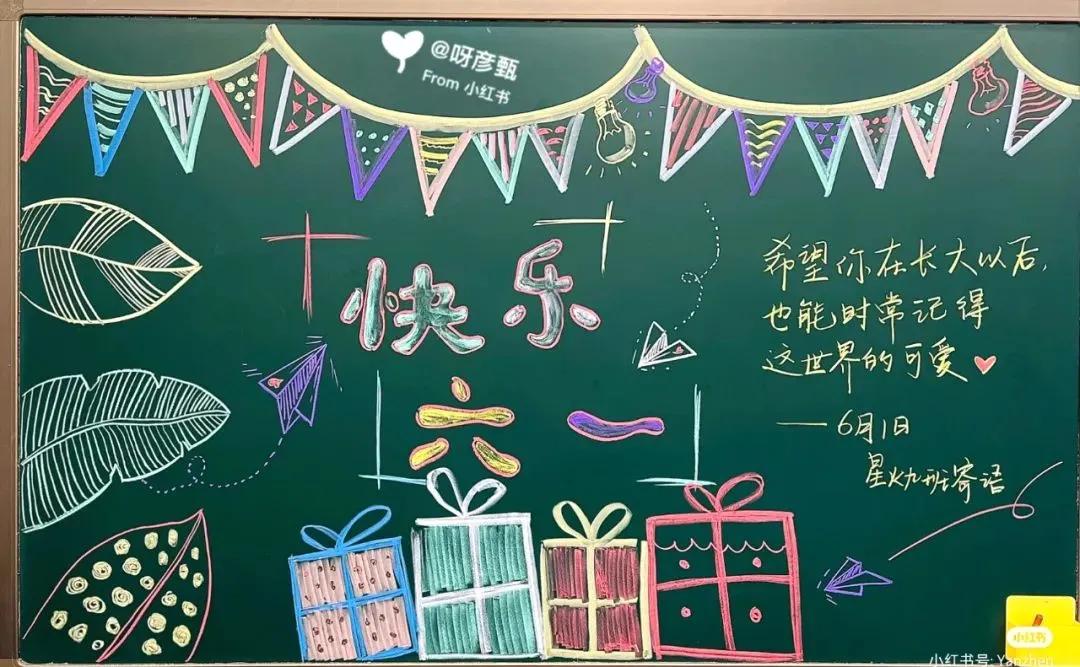 @呀彦甄
From 小红书
快乐
六一
希望你在长大以后,
也能时常记得
这世界的可爱
——6月1日
星火九班寄语
小红书
小红书号:Yanzhen